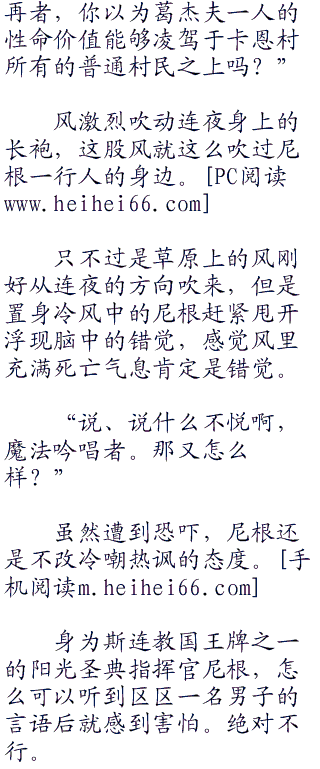 再者，你以为葛杰夫一人的
性命价值能够凌驾于卡恩村
所有的普通村民之上吗？”
风激烈吹动连夜身上的
长袍，这股风就这么吹过尼
根一行人的身边。[PC阅读
www.heihei66.com]
只不过是草原上的风刚
好从连夜的方向吹来，但是
置身冷风中的尼根赶紧甩开
浮现脑中的错觉，感觉风里
充满死亡气息肯定是错觉。
“说、说什么不悦啊，
魔法吟唱者。那又怎么
样？”
虽然遭到恐吓，尼根还
是不改冷嘲热讽的态度。[手
机阅读m.heihei66.com]
身为斯连教国王牌之一
的阳光圣典指挥官尼根，怎
么可以听到区区一名男子的
言语后就感到害怕。绝对不
行。